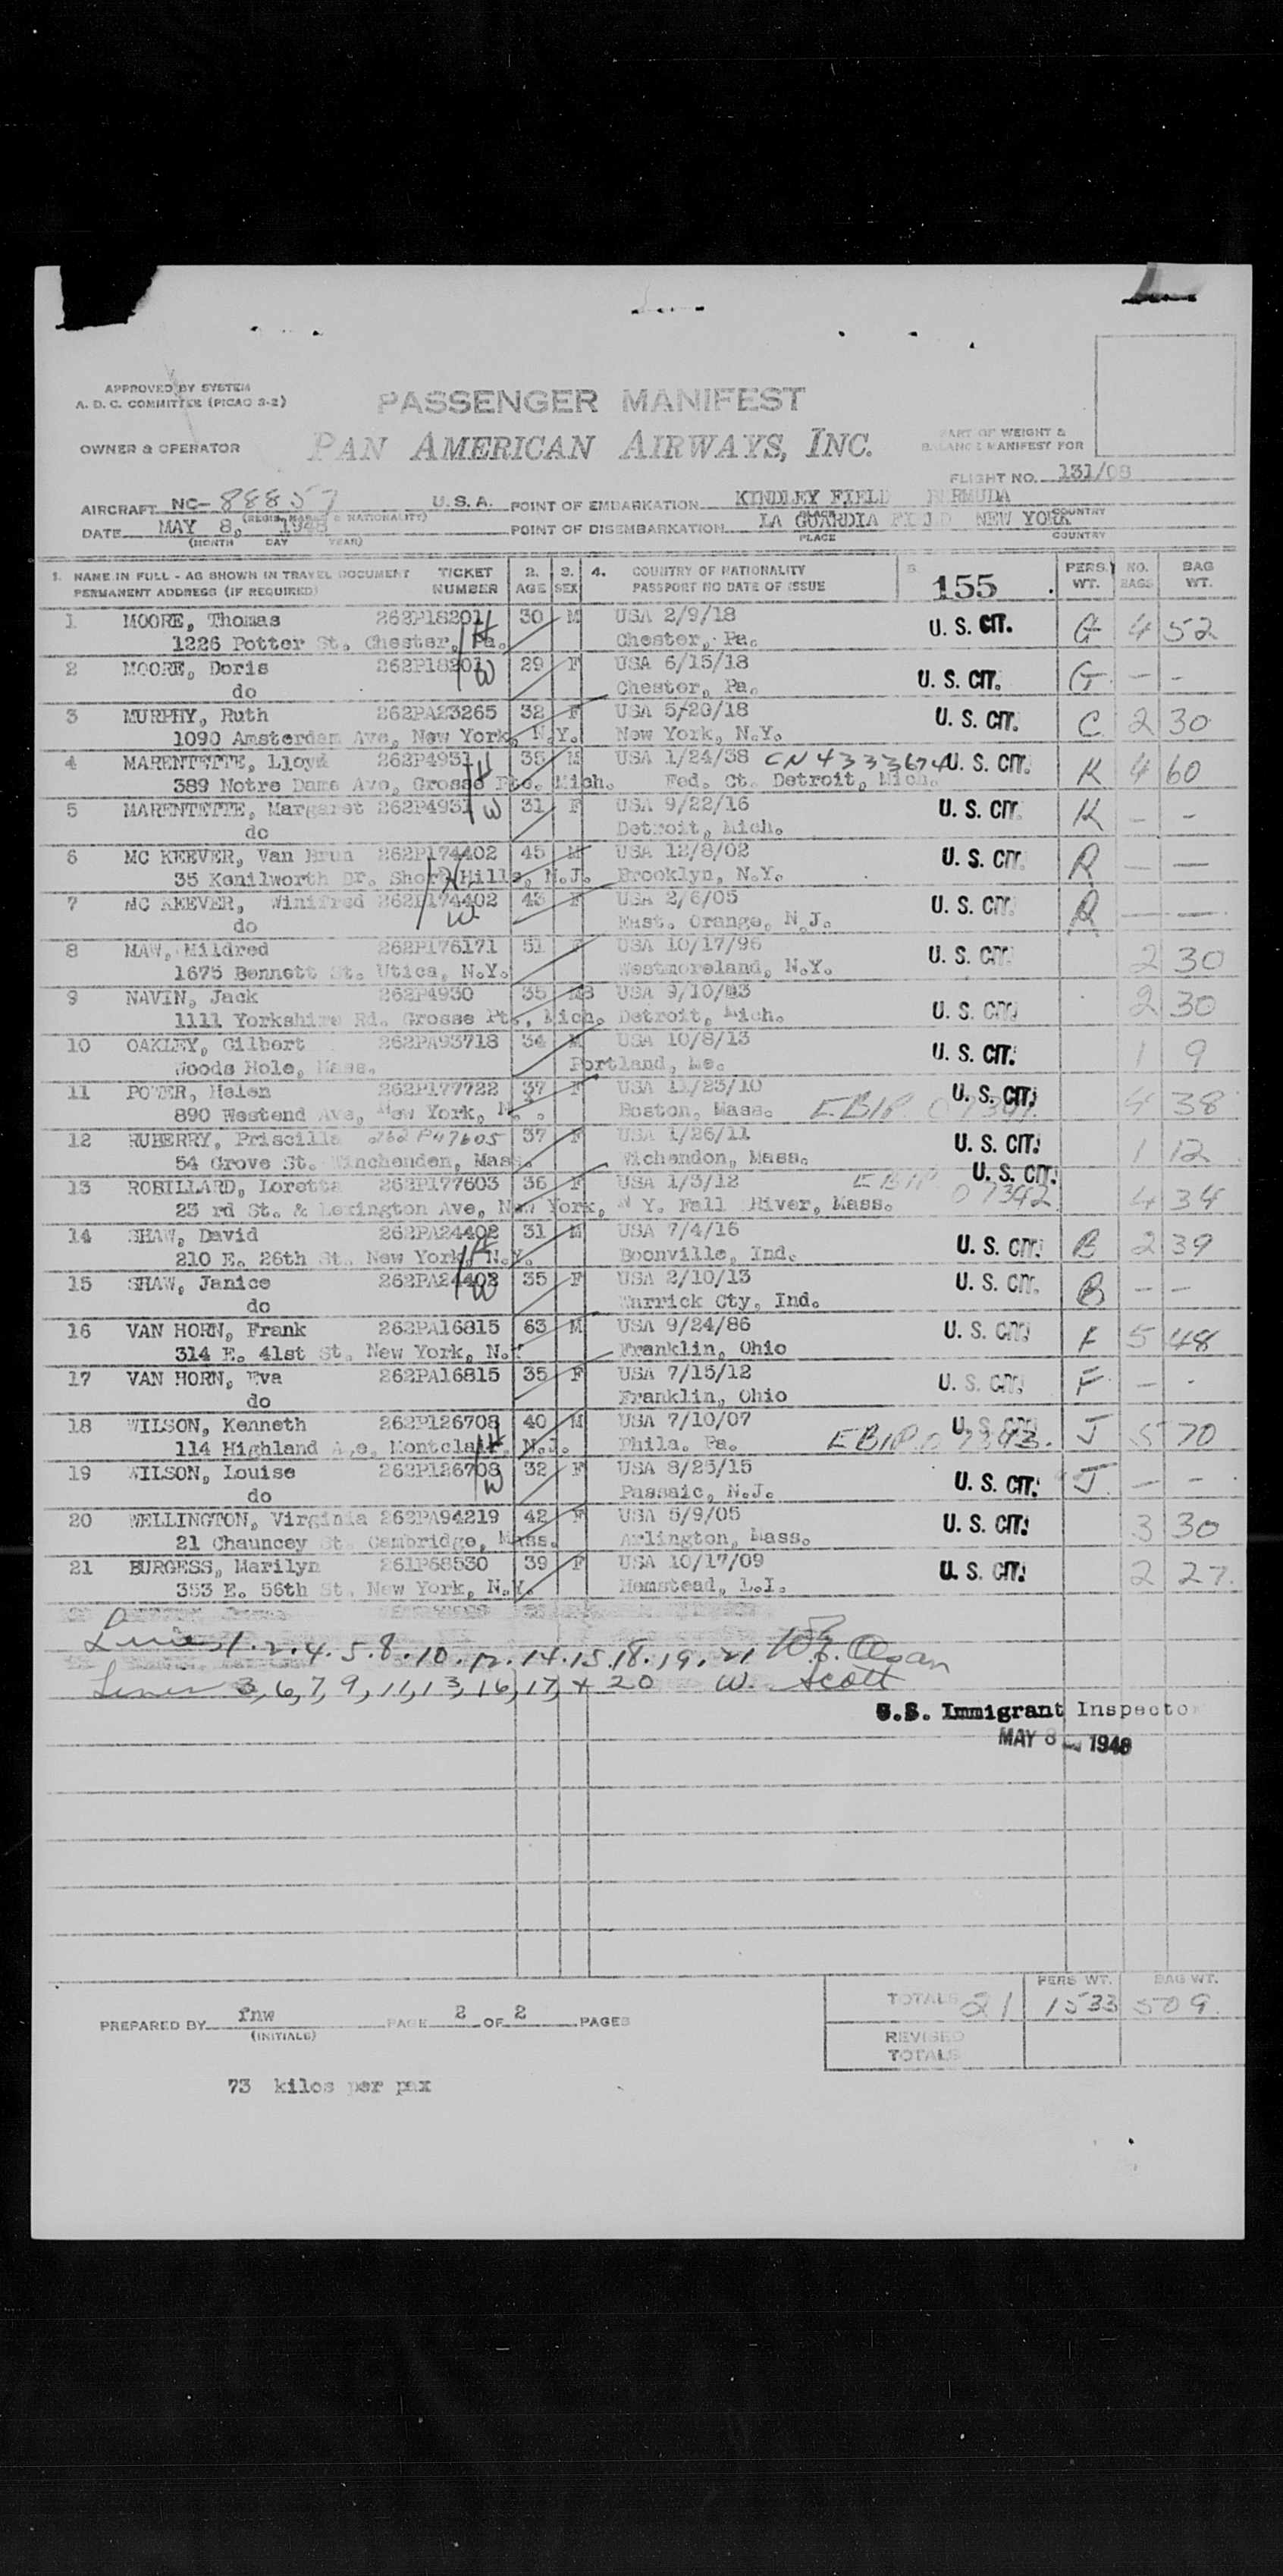 APPROVED BY SYSTEM
A. D. C. COMMITTEE (PICAO 3-2)
PASSENGER MANIFEST
OWNER & OPERATOR PAN AMERICAN AIRWAYS, INC.
PART OF WEIGHT &
BALANCE MANIFEST FOR
FLIGHT NO. 131/08
AIRCRAFT NC-88857 U.S.A. POINT OF EMBARKATION KINDLEY FIELD BERMUDA
(REGIS. MARKS & NATIONALITY) PLACE COUNTRY
DATE MAY 8, 1948 POINT OF DISEMBARKATION LA GUARDIA FIELD NEW YORK
(MONTH DAY YEAR) PLACE COUNTRY
1. NAME IN FULL - AS SHOWN IN TRAVEL DOCUMENT TICKET 2. 3. 4. COUNTRY OF NATIONALITY 5. 155 PERS. NO. BAG
PERMANENT ADDRESS (IF REQUIRED) NUMBER AGE SEX PASSPORT NO DATE OF ISSUE WT. BAGS WT.
1 MOORE, Thomas 262P18201 H 30 M USA 2/9/18 U. S. CIT. G 4 52
1226 Potter St. Chester, Pa. Chester, Pa.
2 MOORE, Doris 262P18201 W 29 F USA 6/15/18 U. S. CIT. G - -
do Chester, Pa.
3 MURPHY, Ruth 262PA23265 32 F USA 5/20/18 U. S. CIT. C 2 30
1090 Amsterdam Ave, New York, N.Y. New York, N.Y.
4 MARENTETTE, Lloyd 262P4931 H 38 M USA 1/24/38 CN 4333674 U. S. CIT. K 4 60
389 Notre Dame Ave, Grosse Pte. Mich. Fed. Ct. Detroit, Mich.
5 MARENTETTE, Margaret 262P4931 W 31 F USA 9/22/16 U. S. CIT. K - -
do Detroit, Mich.
6 MC KEEVER, Van Brun 262P174402 H 45 M USA 12/8/02 U. S. CIT. R - -
35 Kenilworth Dr. Short Hills, N.J. Brooklyn, N.Y.
7 MC KEEVER, Winifred 262P174402 W 43 F USA 2/6/05 U. S. CIT. R - -
do East. Orange, N.J.
8 MAW, Mildred 262P176171 51 F USA 10/17/96 U. S. CIT. 2 30
1675 Bennett St. Utica, N.Y. Westmoreland, N.Y.
9 NAVIN, Jack 262P4930 35 M USA 9/10/ U. S. CIT. 2 30
1111 Yorkshire Rd. Grosse Pte, Mich. Detroit, Mich.
10 OAKLEY, Gilbert 262PA93718 34 M USA 10/8/13 U. S. CIT. 1 9
Woods Hole, Mass. Portland, Me.
11 POWER, Helen 262P177722 37 F USA 11/23/10 U. S. CIT. 4 38
890 Westend Ave, New York, N. . Boston, Mass. EBIP 07391
12 RUBERRY, Priscilla 262 P47605 37 F USA 1/26/11 U. S. CIT. 1 12
54 Grove St. Winchenden, Mass. Wichendon, Mass.
13 ROBILLARD, Loretta 262P177603 36 F USA 1/3/12 EBIP 07392 U. S. CIT. 4 34
23 rd St. & Lexington Ave, New York, N Y. Fall River, Mass.
14 SHAW, David 262PA24402 H 31 M USA 7/4/16 U. S. CIT. B 2 39
210 E. 26th St. New York, N.Y. Boonville, Ind.
15 SHAW, Janice 262PA24402 W 35 F USA 2/10/13 U. S. CIT. B - -
do Warrick Cty, Ind.
16 VAN HORN, Frank 262PA16815 63 M USA 9/24/86 U. S. CIT. F 5 48
314 E. 41st St. New York, N.Y Franklin, Ohio
17 VAN HORN, Eva 262PA16815 35 F USA 7/15/12 U. S. CIT. F - -
do Franklin, Ohio
18 WILSON, Kenneth 262P126708 H 40 M USA 7/10/07 U. S. CIT. J 5 70
114 Highland Ave, Montclair, N.J. Phila. Pa. EBIP 07393.
19 WILSON, Louise 262P126708 W 32 F USA 8/25/15 U. S. CIT. J - -
do Passaic, N.J.
20 WELLINGTON, Virginia 262PA94219 42 F USA 5/9/05 U. S. CIT. 3 30
21 Chauncey St. Cambridge, Mass. Arlington, Mass.
21 BURGESS, Marilyn 261P68530 39 F USA 10/17/09 U. S. CIT. 2 27.
353 E. 56th St. New York, N.Y. Hemstead, L.I.
Lines 1.2.4.5.8.10.12.14.15.18.19.21
Lines 3,6,7,9,11,13,16,17,+ 20 W. Scott
U.S. Immigrant Inspector
MAY 8 1948
PERS WT. BAG WT.
TOTALS 21 1533 509.
PREPARED BY fnw PAGE 2 OF 2 PAGES
(INITIALS)
REVISED
TOTALS
73 kilos per pax